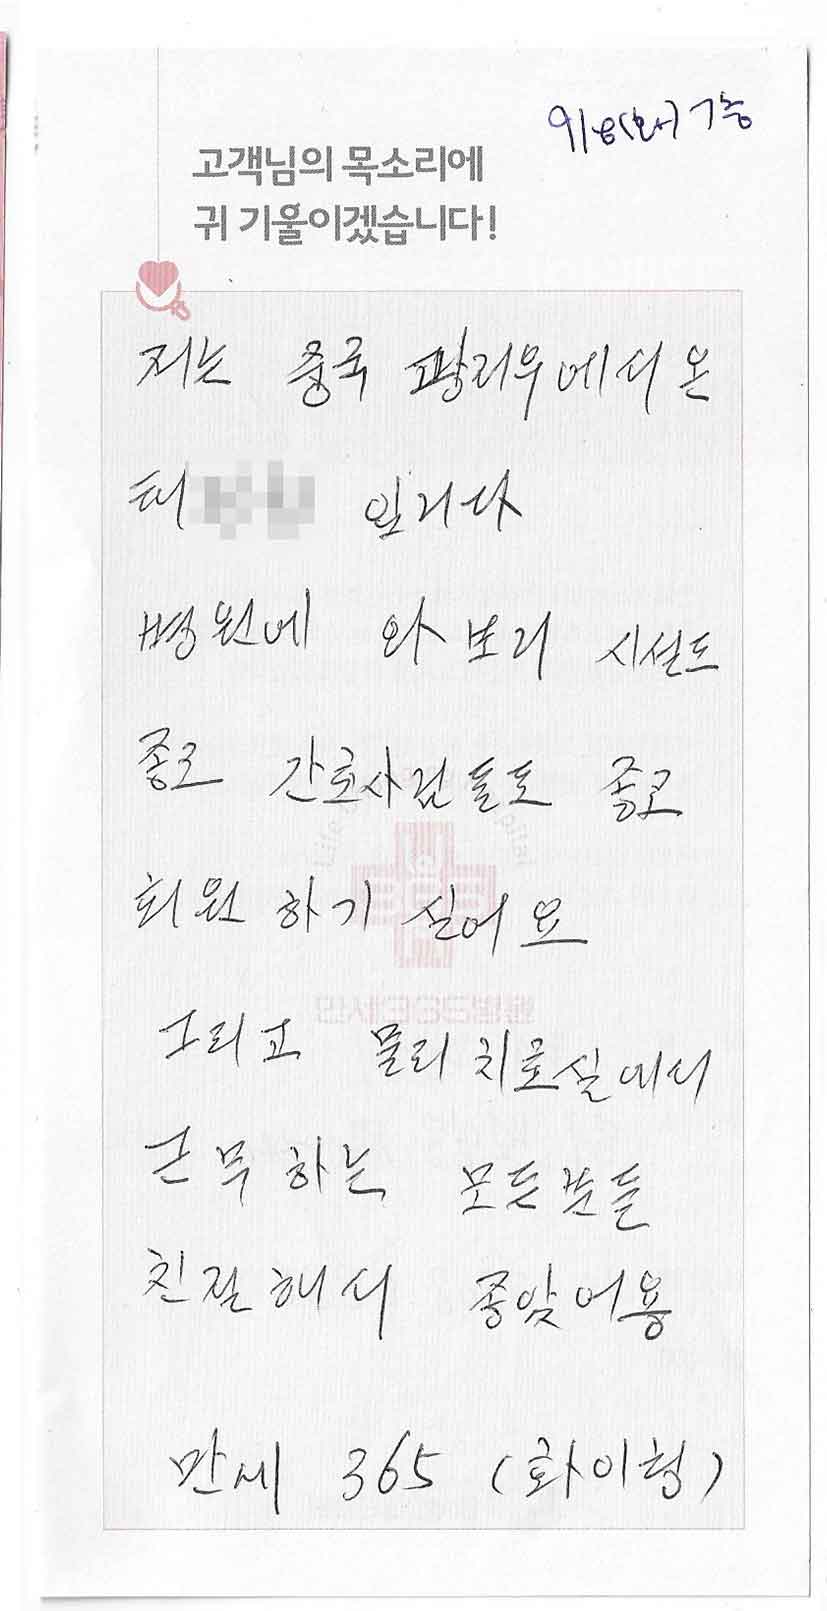 9/6(화) 7층
고객님의 목소리에
귀 기울이겠습니다!
저는 중국 에서 온
태 입니다
병원에 와보니 시설도
종고 간호사님들도 종고
퇴원 하기 실어요
그리고 물리치료실에서
근무하는 모든분들
친절해서 종앗어용
만세 365 (화이팅)